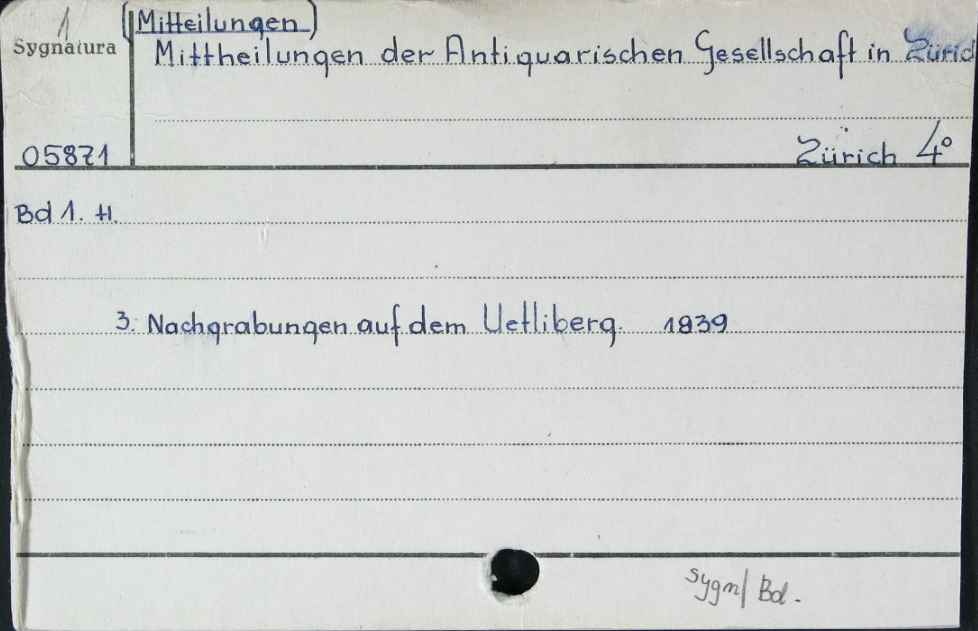 1
(Mitteilungen)
Sygnatura
Mittheilungen der Antiquarischen Gesellschaft in Züric
05871
Zürich 4°
Bd 1. H.
3. Nachgrabungen auf dem Uetliberg. 1839
Sygn/Bd.